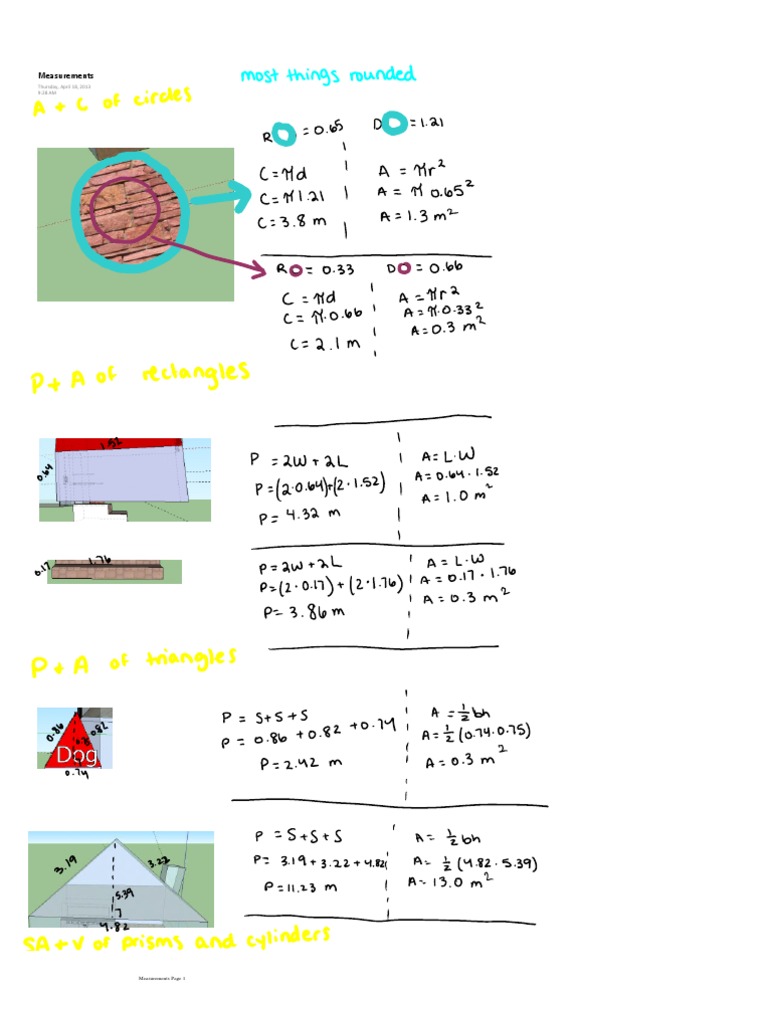 Measurements
most things rounded
Thursday, April 18, 2013
9:28 AM
A + C of circles
R = 0.65
D = 1.21
C = πd
C = π1.21
C = 3.8 m
A = πr²
A = π 0.65²
A = 1.3 m²
R = 0.33
D = 0.66
C = πd
C = π·0.66
C = 2.1 m
A = πr²
A = π·0.33²
A = 0.3 m²
P + A of rectangles
1.52
0.64
P = 2W + 2L
P = (2·0.64)+(2·1.52)
P = 4.32 m
A = L·W
A = 0.64·1.52
A = 1.0 m²
1.76
0.17
P = 2W + 2L
P = (2·0.17) + (2·1.76)
P = 3.86 m
A = L·W
A = 0.17·1.76
A = 0.3 m²
P + A of triangles
0.86
0.82
Dog
0.74
P = S+S+S
P = 0.86 + 0.82 + 0.74
P = 2.42 m
A = ½bh
A = ½(0.74·0.75)
A = 0.3 m²
3.19
3.22
5.39
4.82
P = S+S+S
P = 3.19 + 3.22 + 4.82
P = 11.23 m
A = ½bh
A = ½(4.82·5.39)
A = 13.0 m²
SA + V of prisms and cylinders
Measurements Page 1